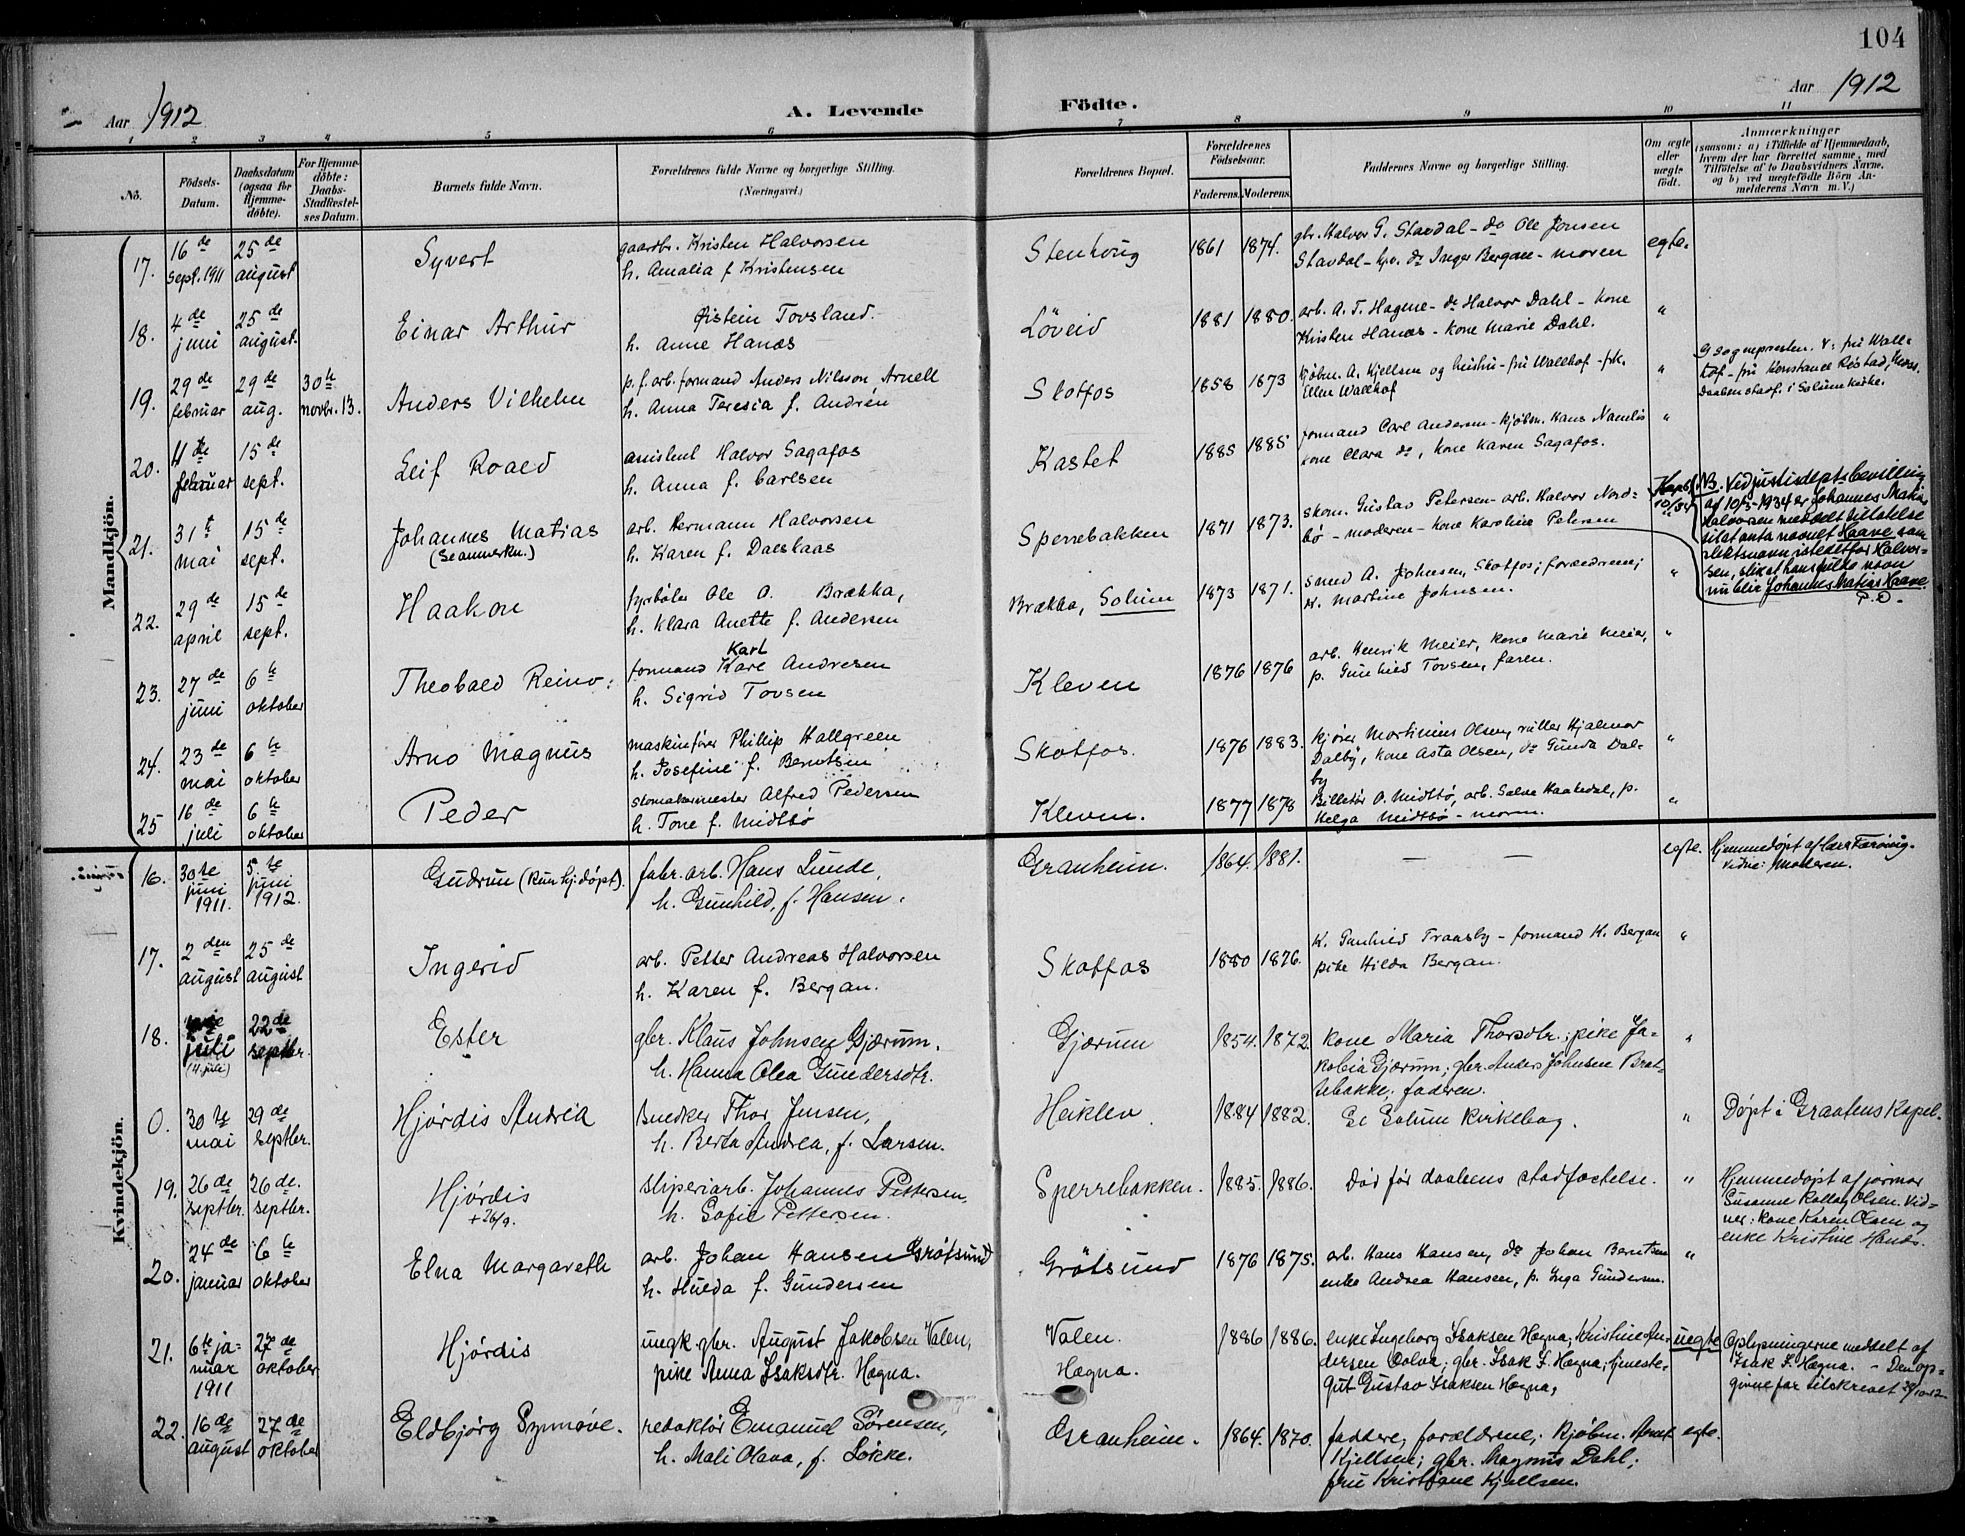 104
Aar 1912
A. Levende Födte.
Aar 1912
1 2 3 4 5 6 7 8 9 10 11
No.
Födsels-Datum.
Daabsdatum (ogsaa for Hjemme-döbte).
For Hjemme-döbte: Daabs-Stadfæstel-ses Datum.
Barnets fulde Navn.
Forældrenes fulde Navne og borgerlige Stilling. (Næringsvei.)
Forældrenes Bopæl.
Forældrenes Födselsaar.
Faderens. Moderens.
Faddernes Navne og borgerlige Stilling.
Om ægte eller uægte födt.
Anmærkninger
(saasom: a) i Tilfælde af Hjemmedaab, hvem der har forrettet samme, med Tilföielse af to Daabsvidners Navne, og b) ved uægtefödte Börn An-melderens Navn m.V.)
Mandkjön.
17. 16de sept. 1911 25de august Syvert
gaardbr. Kristen Halvorsen
h. Amalia f Kristensen
Stenhoug 1861 1874.
gbr. Halvor G. Stavdal - do Ole Jonsen
Stavdal - do Inger Bergan - moren
egte.
18. 4de juni 25de august. Einar Arthur
Øistein Tovsland.
h. Anne Hanæs
Löveid 1881 1880.
arb. A. T. Hagene - do Halvor Dahl - kone
Kirsten Hanæs - kone Marie Dahl.
"
19. 29de februar 29de aug. 30te novbr. 13. Anders Vilhelm
p. f. arb. formand Anders Nilsson Arnell
h. Anna Teresia f. Andrén
Skotfos 1858 1873
kjøbm. A. Kjellsen og hustru - fru Wallhof - frk.
Ellen Wallhof
"
sognepresten. V: fru Wall=
hof - fru Konstance Röstad,
Daaben stadf. i Solum kirke.
20. 4de februar 15de sept. Leif Roald
h. Anna f. Carlsen
Kastet 1885 1885
formand Carl Andersen - kjøbm. Hans Namløs
kone Clara do, kone Karen Sagafos.
"
21. 31te mai 15de sept. Johannes Matias
(Se anmerkn.)
arb. Hermann Halvorsen
h. Karen f. Dalslaas
Sperrebakken 1871 1873.
skom. Gustav Petersen - arb. Halvor Nord=
bø - moderen - kone Karoline Petersen
10/5 34
NB. Ved justisdepts bevilling
af 10/5-1934 er Johannes Matias
Halvorsen meddelt tillatelse
til at anta navnet Haave som
slektsnavn istedetfor Halvor-
sen, slik at hans fulde navn
nu blir Johannes Matias Haave
P.O.
22. 29de april 15de sept. Haakon
fyrbøter Ole O. Brækka,
h. Klara Anette f. Andersen
Brækka, Solum 1873 1871.
smed A. Johnsen, Skotfos; forældrene;
k. Martine Johnsen.
"
23. 27de juni 6te oktober Theobald Reinv:
Karl
formand Karl Andresen
h. Sigrid Tovsen
Kleven 1876 1876
arb. Henrik Meier, kone Marie Meier,
p. Gunhild Tovsen, faren.
"
24. 23de mai 6te oktober Arno Magnus
maskinfører Phillip Hallgreen
h. Josefine f. Berntsen
Skotfos. 1876 1883.
kjører Mortinius Olsen, Hjalmar
Dalby, kone Asta Olsen, do Gunda Dal=
by
"
25 16de juli 6te oktober Peder
skomakermester Alfred Pedersen
h. Tone f. Midtbø
Kleven. 1877 1878
Billetör O. Midtbø, arb. Salve Haakedal, p.
Helga Midtbø - moren.
"
Kvindekjön.
16. 30te juni 1911. 5te juni 1912. Gudrun (kun hj. døpt).
fabr. arb. Hans Lunde,
h. Gunhild, f. Hansen.
Granheim. 1864. 1881.
— —
egte.
Hjemmedøpt af
Vidne: Moderen.
17. 2den august 25de august Ingerid
arb. Petter Andreas Halvorsen
h. Karen f. Bergan.
Skotfos 1880 1876.
K. Gunhild Traasby - formand H. Bergan
pike Hilda Bergan.
"
18. juli (4. juli) 22de septbr. Ester
gbr. Klaus Johnsen Gjærum,
h. Hanna Olea Gundersdtr.
Gjærum 1854. 1872.
kone Maria Thorsdtr.; pike Ja=
kobia Gjærum; gbr. Anders Johnsen Brat=
sbakke; faderen.
"
0. 30te mai 29de septbr. Hjørdis Andrea
Snedker Thor Jensen,
h. Berta Andrea, f. Larsen.
Heiklev 1884 1882.
Se Solum kirkebog.
"
Døpt i Graatens Kapel.
19. 26de septbr. 26de. septbr. Hjørdis
+ 26/9.
Sliperiarb. Johannes Pettersen,
h. Sofie Pettersen.
Sperrebakken. 1885. 1886.
Død før daabens stadfæstelse.
"
Hjemmedøpt af jormor
Susanne Olsen. Vid=
ner: kone Karen Olsen og
enke Kristine Hanös.
20. 24de januar 6te oktober Elna Margareth
arb. Johan Hansen Grøtsund
h. Hulda f. Gundersen
Grøtsund 1876 1875.
arb. Hans Hansen, do Johan Berntsen
enke Andrea Hansen, p. Inga Gundersen.
"
21. 6te ja=nuar 1911 27de oktober Hjørdis
ungk. gbr. August Jakobsen Valen,
pike Anna Isaksdtr. Hægna.
Valen.
Hægna.
1886 1886.
enke Ingeborg Isaksen Hægna; Kristine An=
dersen Dolva; gbr. Isak S. Hægna; tjeneste=
gut Gustav Isaksen Hægna,
uegte
Oplysningerne meddelt af
Isak S. Hægna. - Den op=
givne far tilskrevet
22. 16de august 27de oktober Eldbjørg Synnøve.
redaktör Emanuel Sörensen,
h. Mali Olava, f. Løkke.
Granheim. 1864. 1870.
faddere; forældrene; kjøbm.
Kjellsen; gbr. Magnus Dahl;
fru Kristiane Kjellsen.
egte.